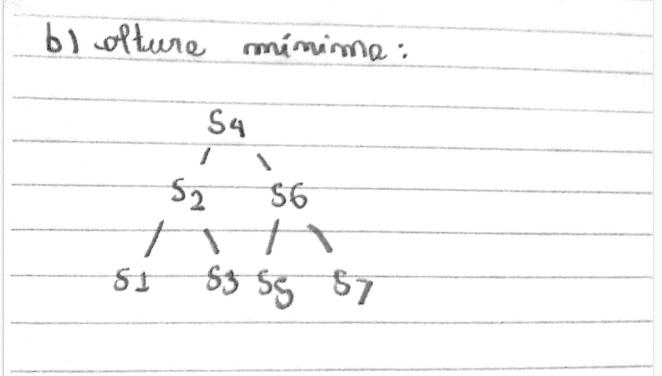 b) altura mínima:
S4
S2 S6
S1 S3 S5 S7